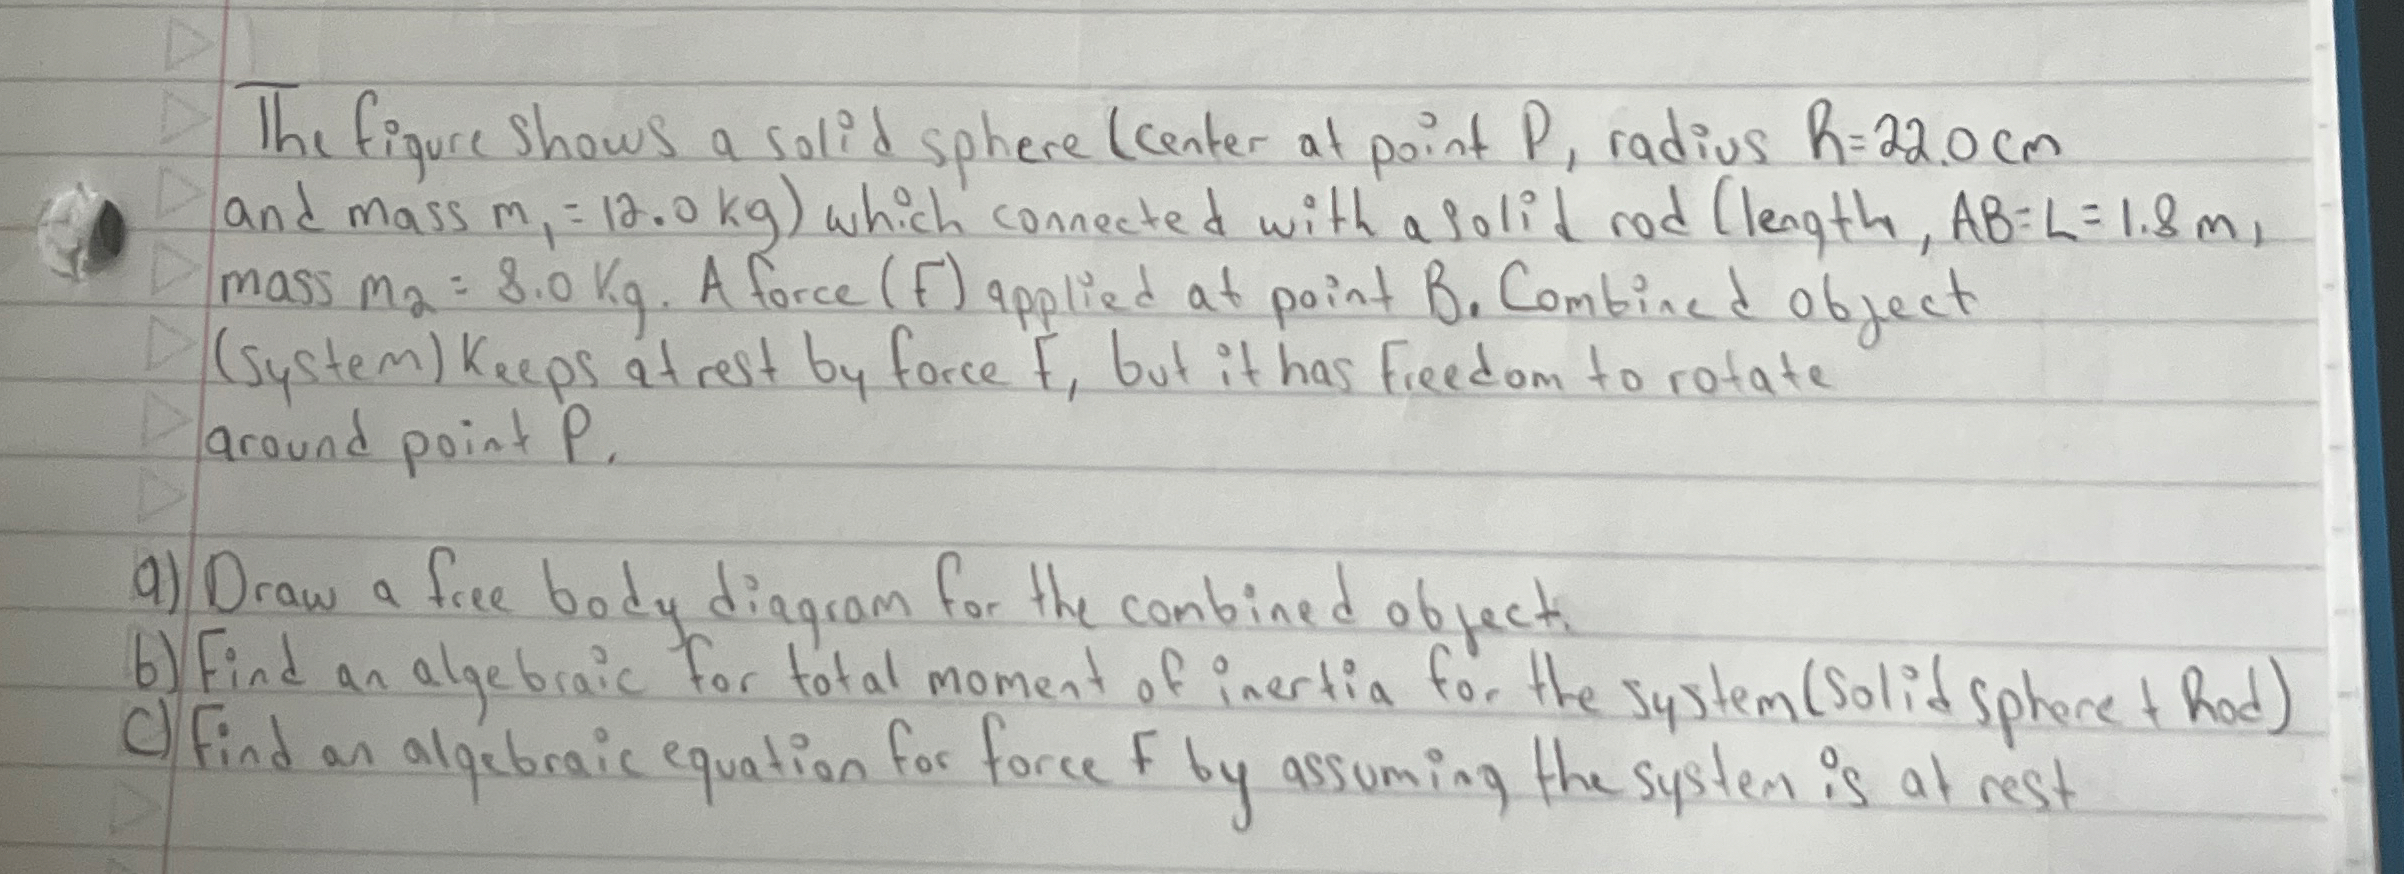 The figure shows a solid sphere (center at point P, radius R=22.0 cm
and mass m₁ = 12.0 kg) which connected with a solid rod (length, AB=L=1.8 m,
mass m₂ = 8.0 kg. A force (F) applied at point B. Combined object
(system) keeps at rest by force F, but it has freedom to rotate
around point P.
a) Draw a free body diagram for the combined object.
b) Find an algebraic for total moment of inertia for the system (Solid sphere + Rod)
c) Find an algebraic equation for force F by assuming the system is at rest